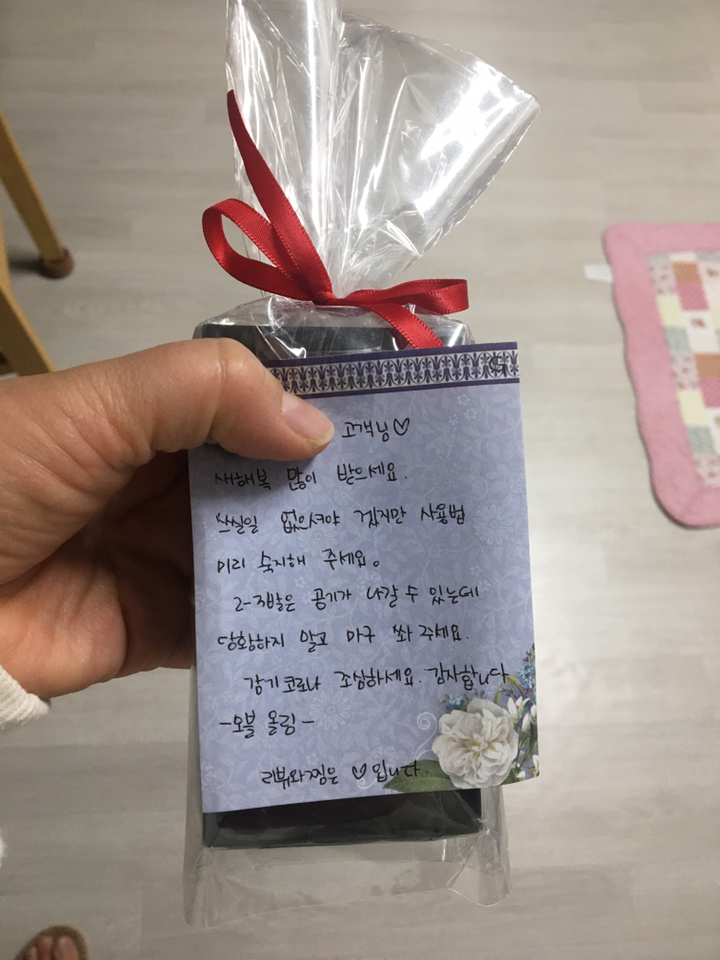 고객님♡
새해복 많이 받으세요.
쓰실일 없으셔야 겠지만 사용법
미리 숙지해 주세요.
2-3발은 공기가 나갈 수 있는데
당황하지 말고 마구 쏴 주세요.
감기 코로나 조심하세요. 감사합니다
-오블 올림-
리뷰와찜은 ♡입니다.